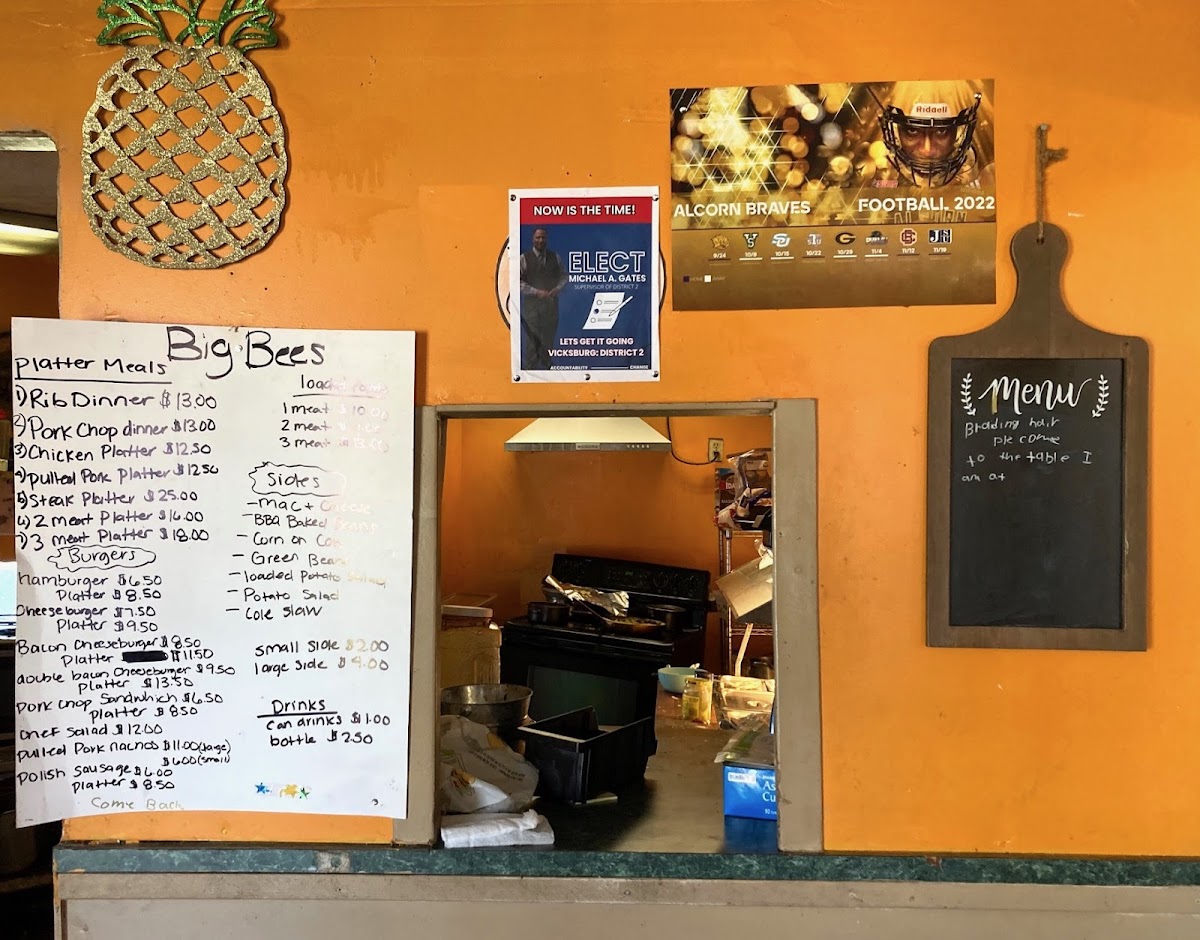 Big Bees
Platter Meals
1) Rib Dinner $13.00
2) Pork Chop dinner $13.00
3) Chicken Platter $12.50
4) pulled Pork Platter $12.50
5) Steak Platter $25.00
6) 2 meat Platter $16.00
7) 3 meat Platter $18.00
Burgers
hamburger $6.50
Platter $8.50
Cheeseburger $7.50
Platter $9.50
Bacon Cheeseburger $8.50
Platter $11.50
double bacon Cheeseburger $9.50
Platter $13.50
pork chop Sandwhich $6.50
platter $8.50
Chef Salad $12.00
pulled Pork nachos $11.00 (large)
$6.00 (small)
polish sausage $6.00
platter $8.50
Come Back
loaded
1 meat $10.00
2 meat
3 meat
Sides
- mac + Cheese
- BBQ Baked Beans
- Corn on Cob
- Green Beans
- loaded Potato Salad
- Potato Salad
- Cole slaw
small side $2.00
large side $4.00
Drinks
can drinks $1.00
bottle $2.50
NOW IS THE TIME!
ELECT
MICHAEL A. GATES
SUPERVISOR OF DISTRICT 2
LETS GET IT GOING
VICKSBURG: DISTRICT 2
ACCOUNTABILITY CHANGE
Riddell
ALCORN BRAVES FOOTBALL 2022
9/24 10/8 10/15 10/22 10/29 11/4 11/12 11/19
Menu
Brading hair
ple come
to the table I
am at